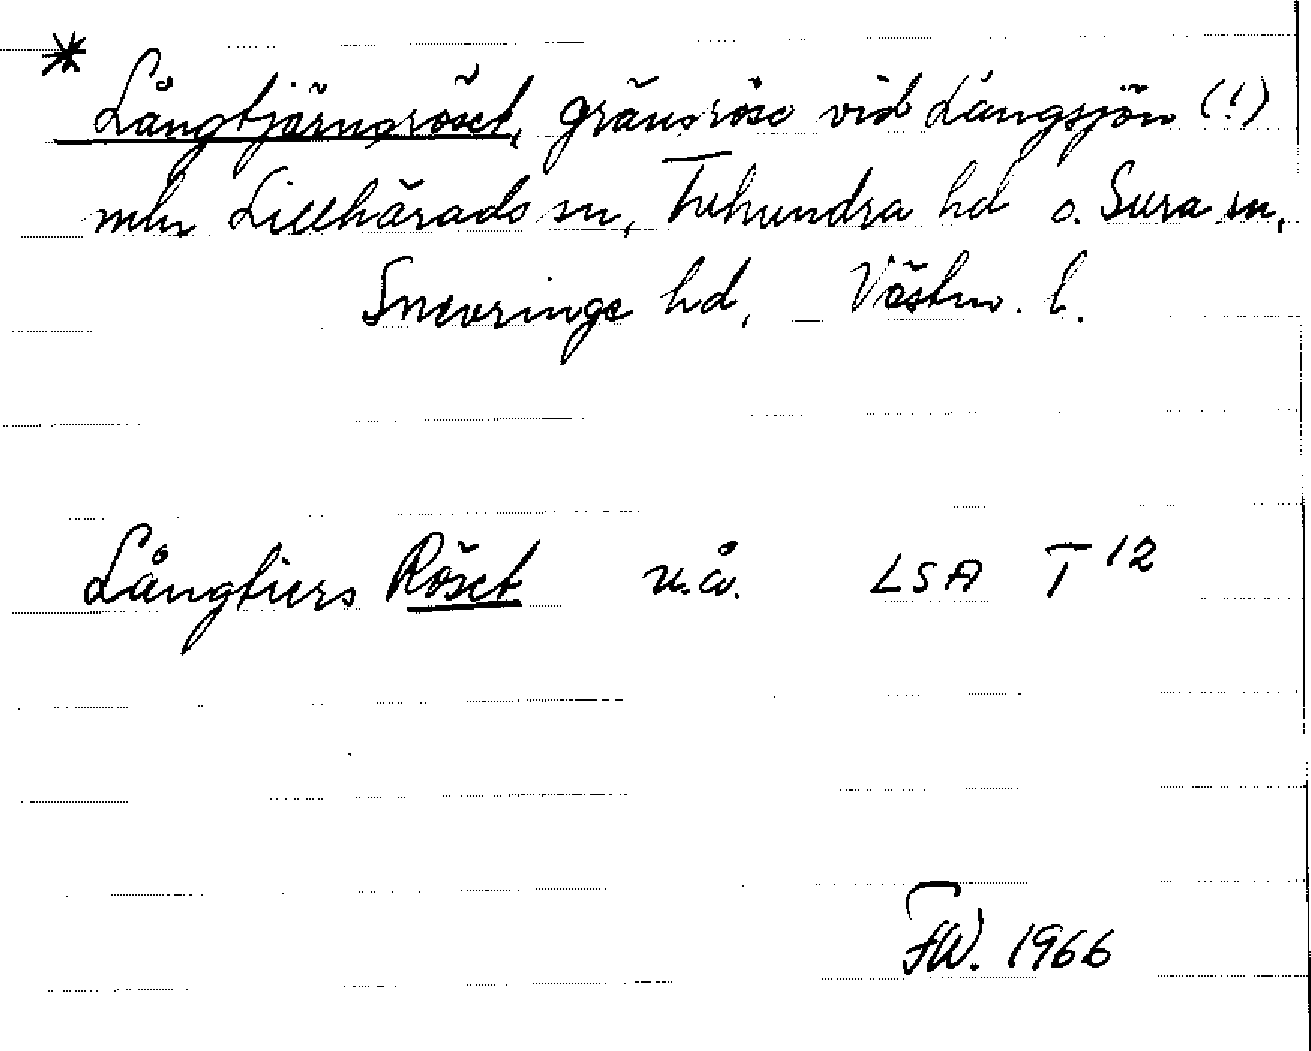 * Långtjärnsröset, gränsröse vid Långsjön (!)
mln Lillhärads sn, Tuhundra hd o. Sura sn,
Snevringe hd, Västm. l.
Långtiers Röset u.å. LSA T 12
FW. 1966